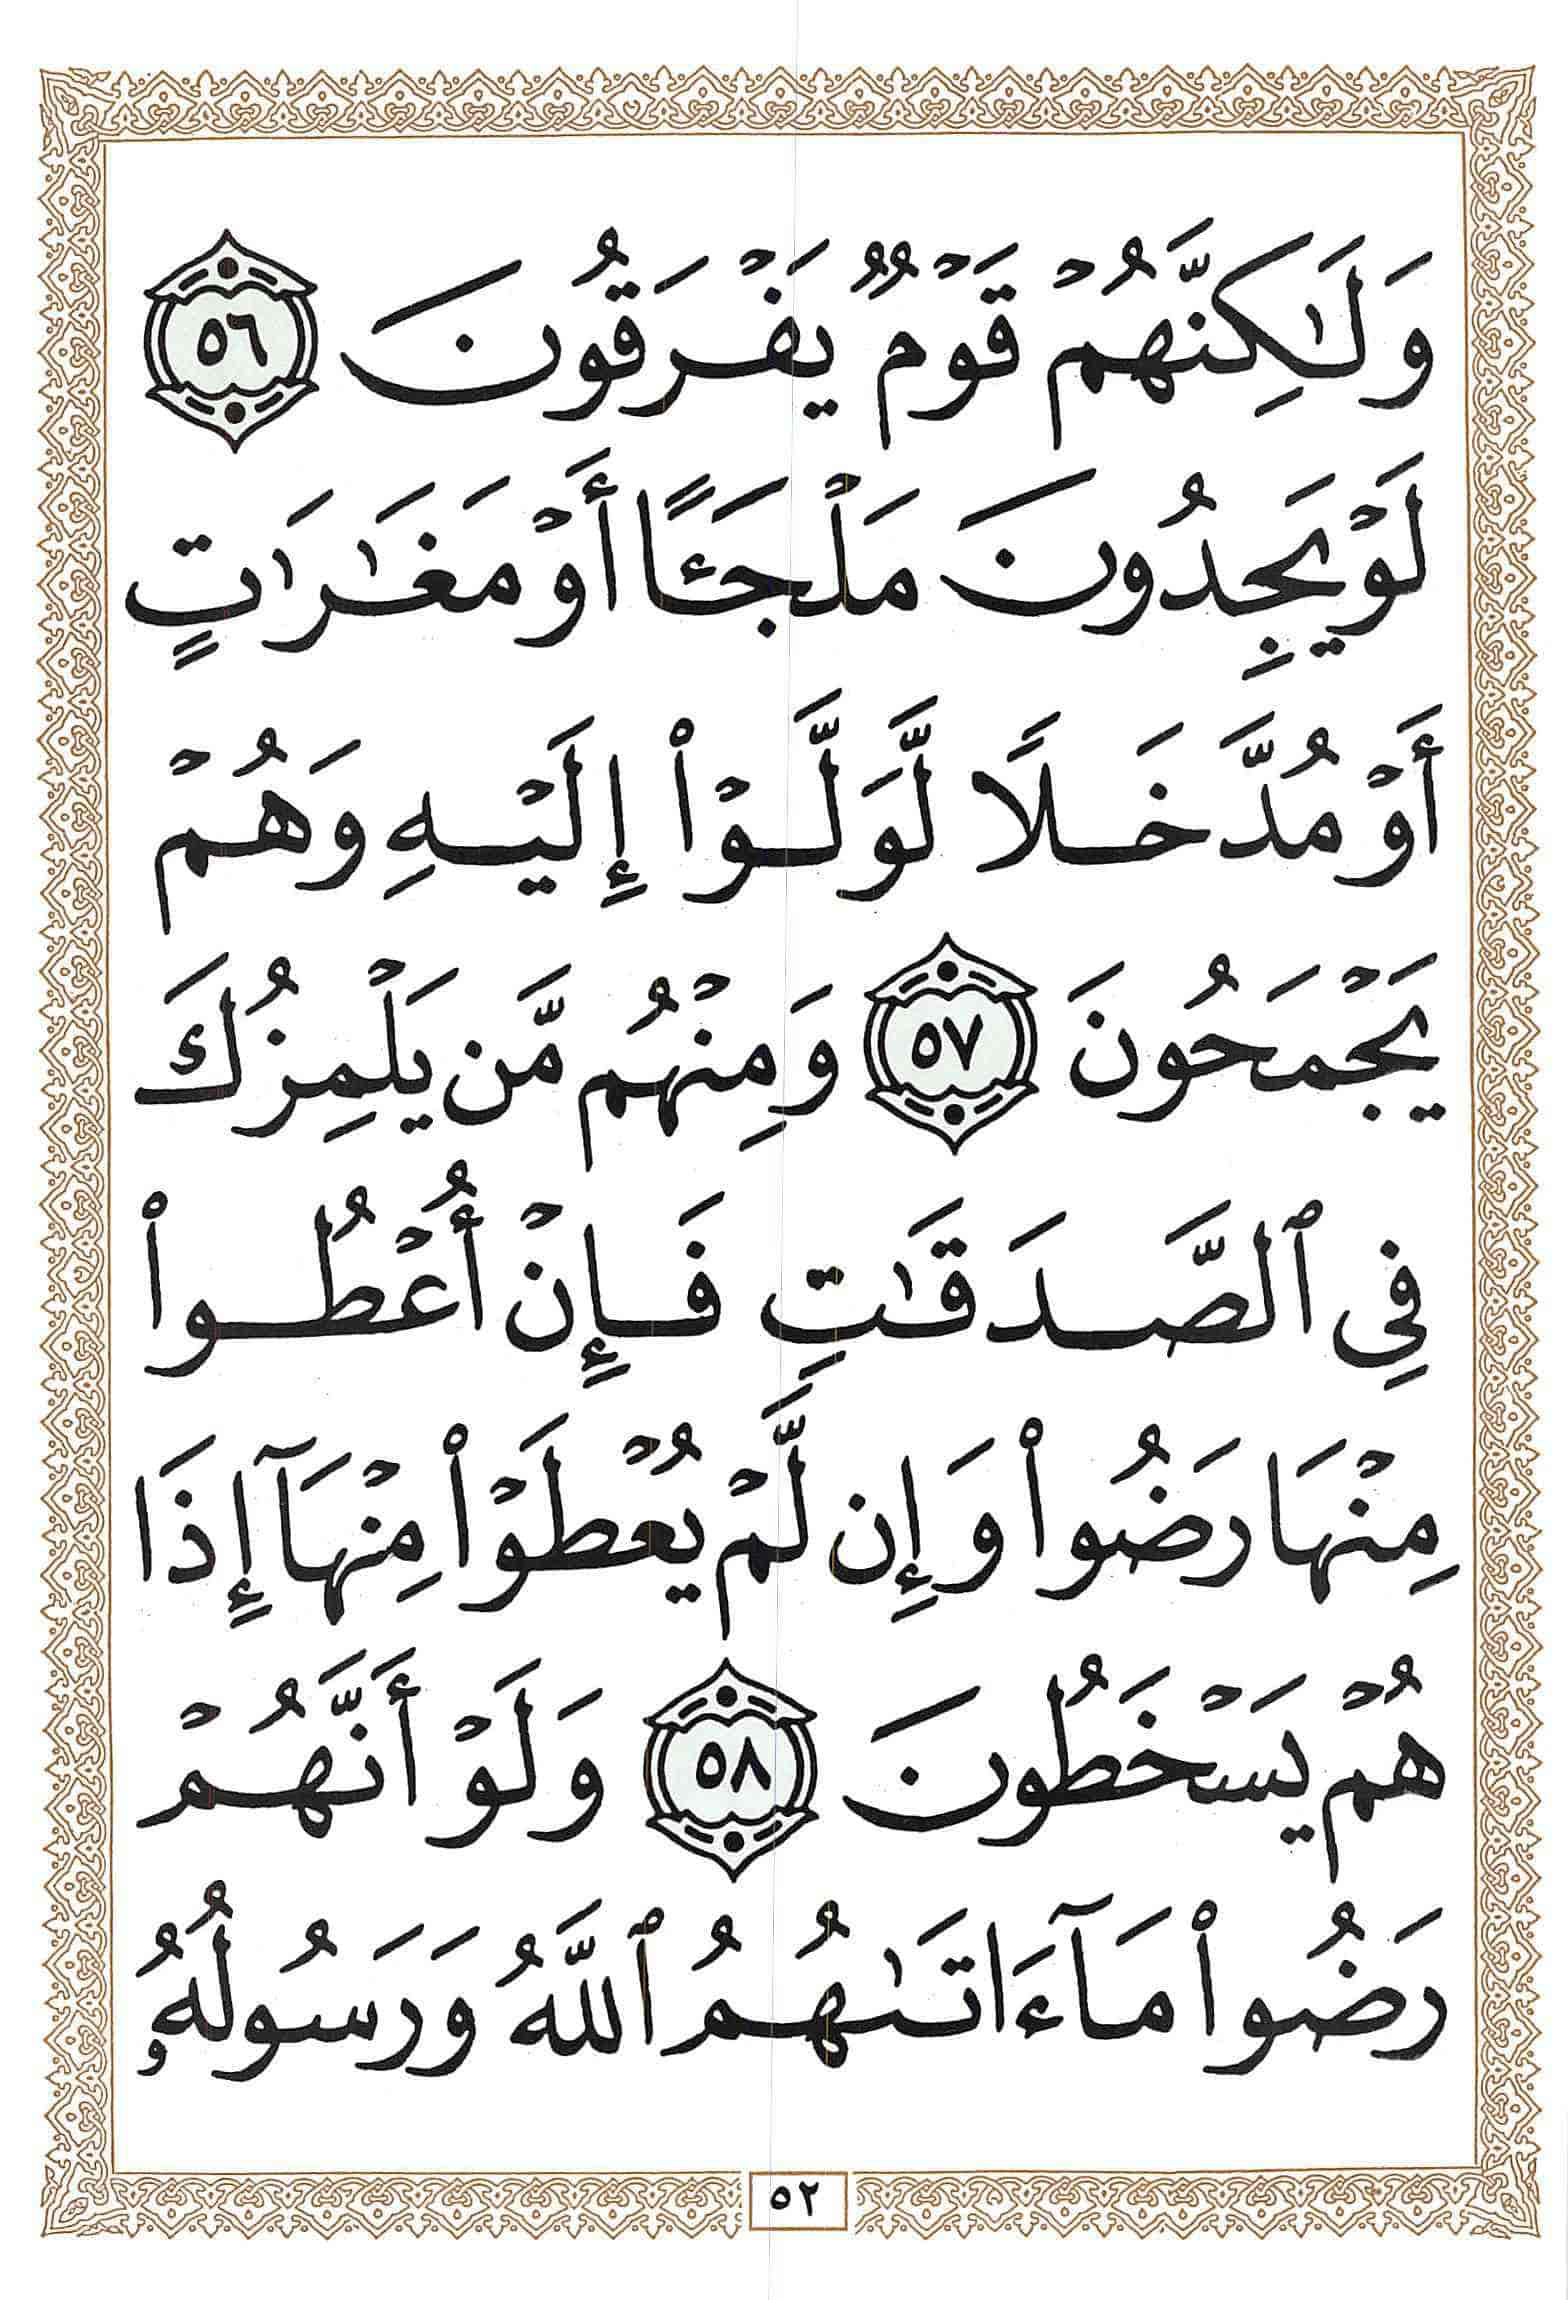 وَلَٰكِنَّهُمْ قَوْمٌ يَفْرَقُونَ ٥٦
لَوْ يَجِدُونَ مَلْجَـًٔا أَوْ مَغَٰرَٰتٍ
أَوْ مُدَّخَلًا لَّوَلَّوْا۟ إِلَيْهِ وَهُمْ
يَجْمَحُونَ ٥٧ وَمِنْهُم مَّن يَلْمِزُكَ
فِي ٱلصَّدَقَٰتِ فَإِنْ أُعْطُوا۟
مِنْهَا رَضُوا۟ وَإِن لَّمْ يُعْطَوْا۟ مِنْهَآ إِذَا
هُمْ يَسْخَطُونَ ٥٨ وَلَوْ أَنَّهُمْ
رَضُوا۟ مَآ ءَاتَىٰهُمُ ٱللَّهُ وَرَسُولُهُۥ
٥٢